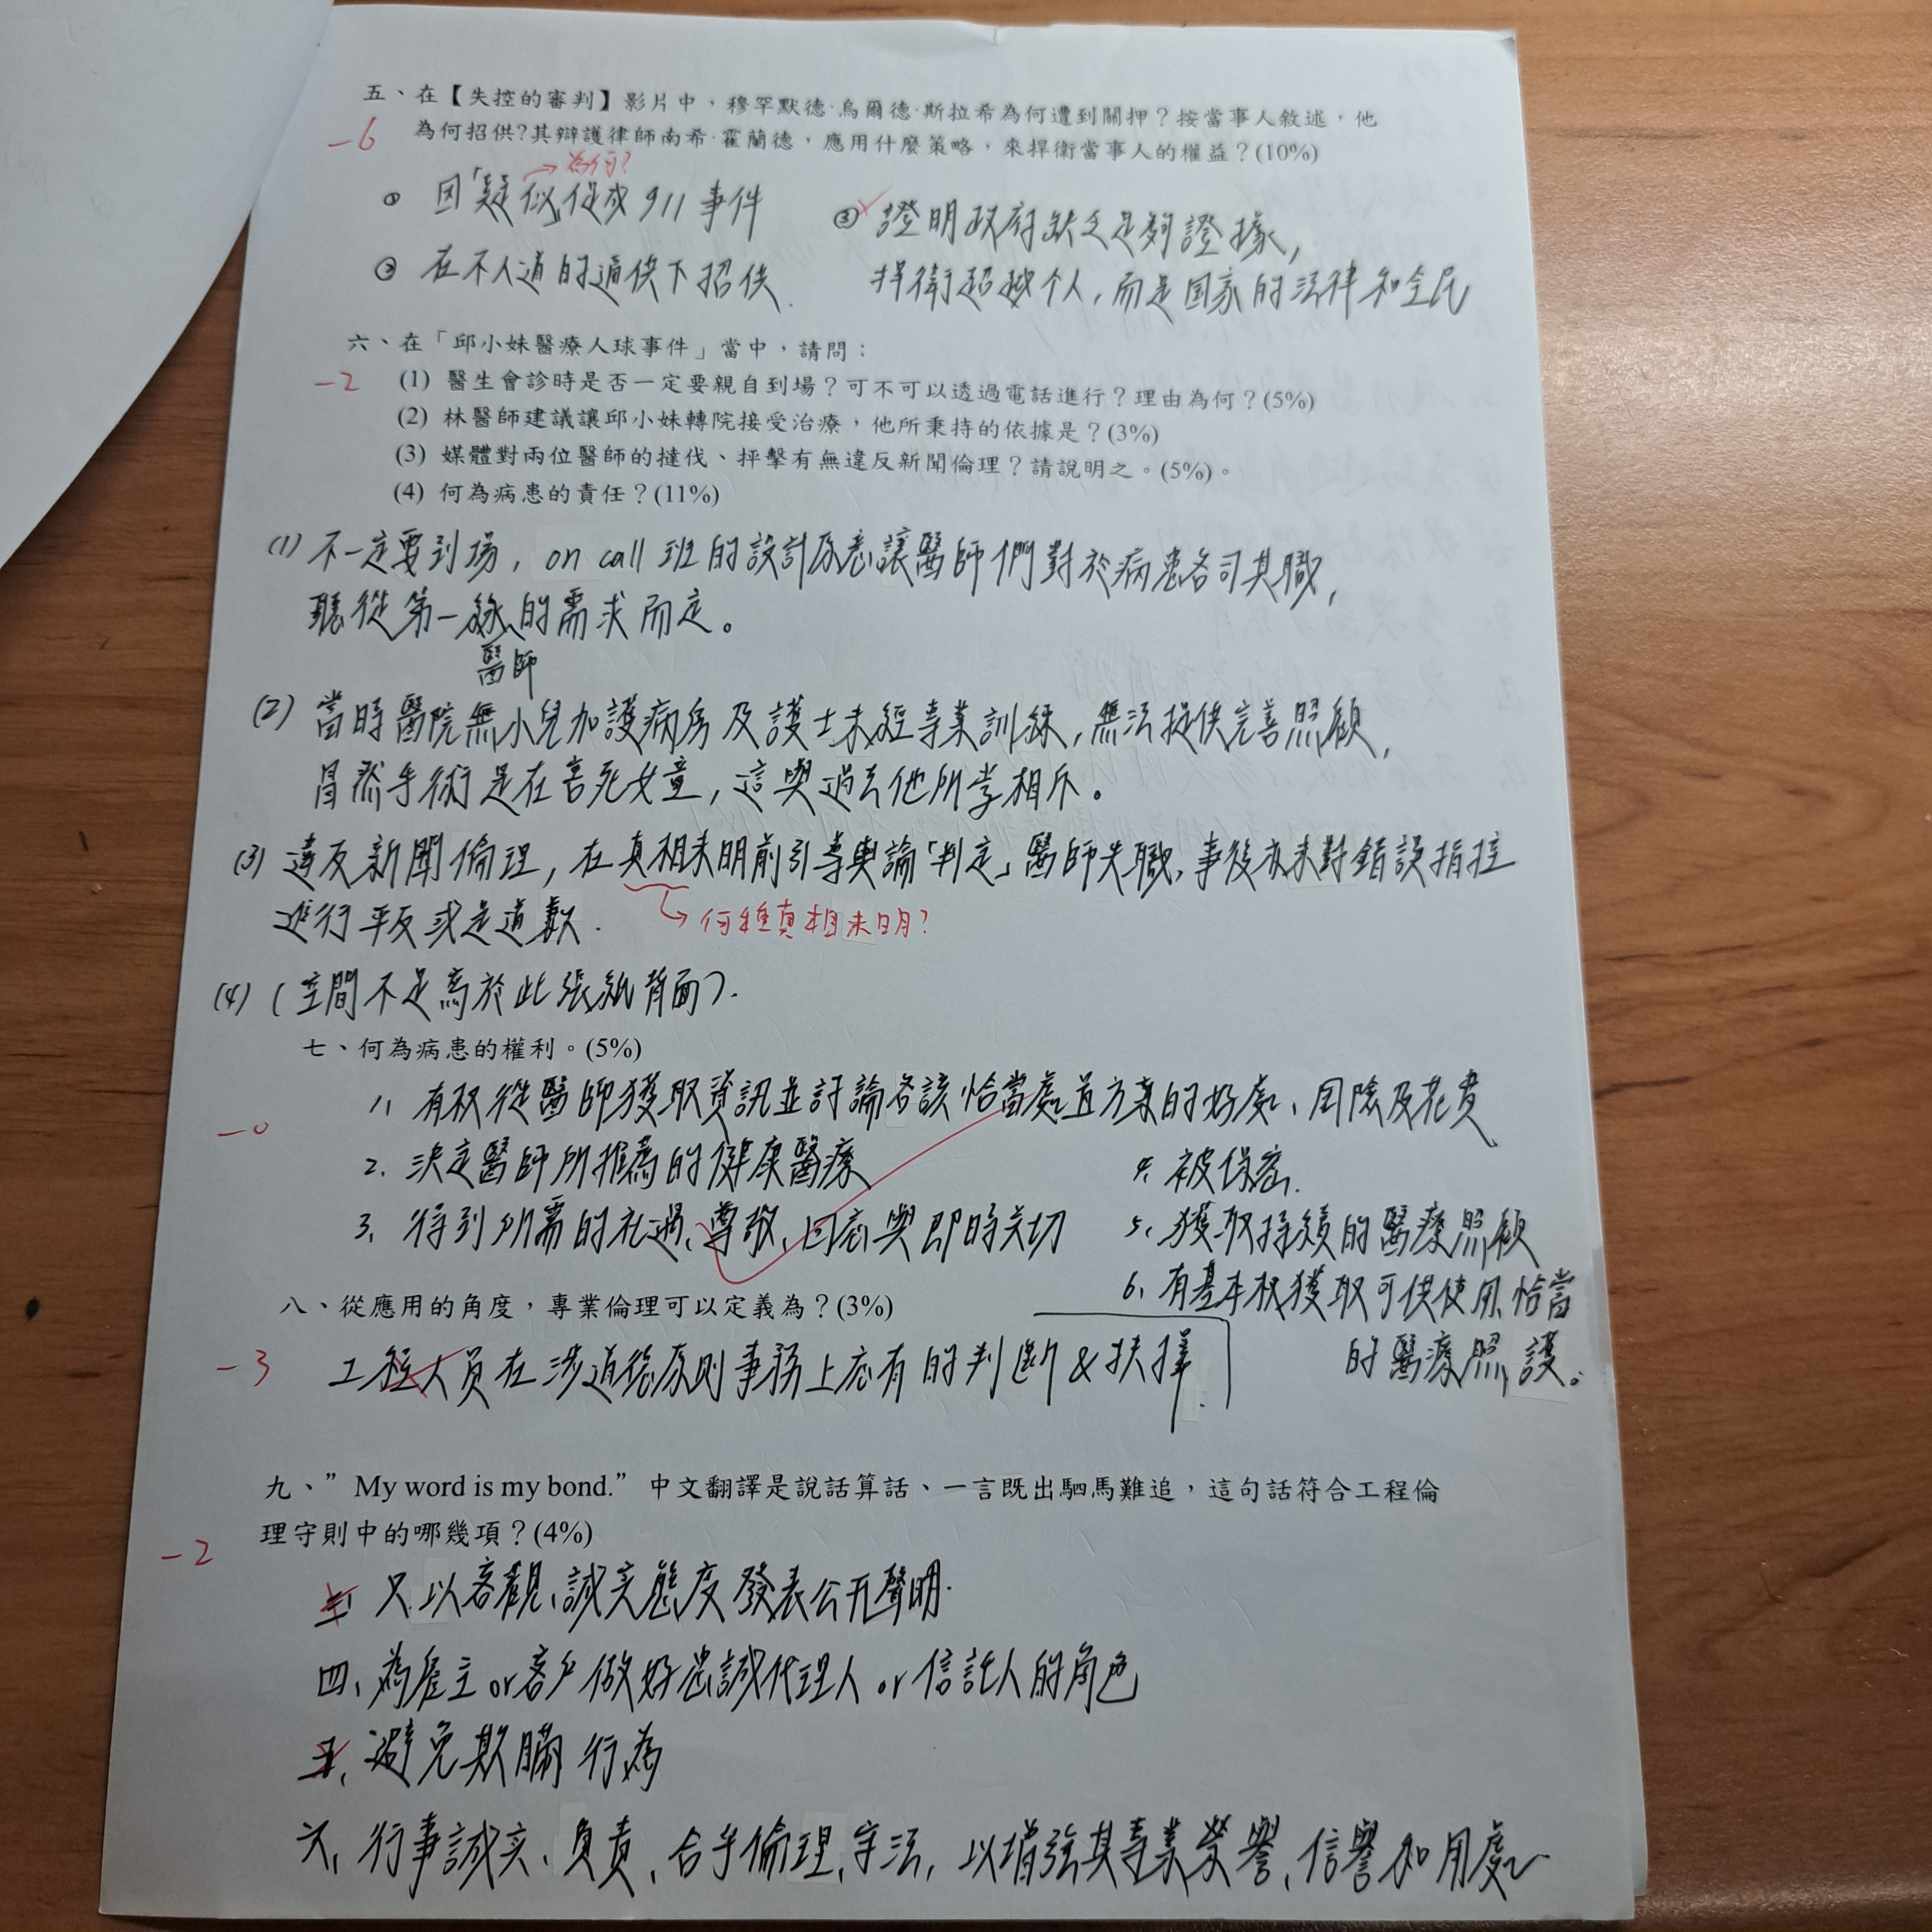 五、在【失控的審判】影片中，穆罕默德·烏爾德·斯拉希為何遭到關押？按當事人敘述，他
為何招供?其辯護律師南希·霍蘭德，應用什麼策略，來捍衛當事人的權益？(10%)
-6
→為何?
① 因「疑似」促成 911 事件
② 在不人道的逼供下招供.
③ 證明政府缺乏足夠證據,
捍衛超越个人, 而是国家的法律和全民
六、在「邱小妹醫療人球事件」當中，請問：
-2
(1) 醫生會診時是否一定要親自到場？可不可以透過電話進行？理由為何？(5%)
(2) 林醫師建議讓邱小妹轉院接受治療，他所秉持的依據是？(3%)
(3) 媒體對兩位醫師的撻伐、抨擊有無違反新聞倫理？請說明之。(5%)。
(4) 何為病患的責任？(11%)
(1) 不一定要到場, on call 班的設計原意讓醫師們對於病患各司其職,
聽從第一線的需求而定。
醫師
(2) 當時醫院無小兒加護病房及護士未經專業訓練, 無法提供完善照顧,
冒然手術是在害死女童, 這與過去他所學相斥。
(3) 違反新聞倫理, 在真相未明前引導輿論「判定」醫師失職, 事後亦未對錯誤指控
進行平反或是道歉.
→何種真相未明?
(4) (空間不足寫於此張紙背面).
七、何為病患的權利。(5%)
-0
1. 有权從醫師獲取資訊並討論各該恰當處置方案的好處、風險及花費
2. 決定醫師所推薦的健康醫療
3. 得到所需的礼遇、尊敬、回應與即時关切
4. 被保密.
5. 獲取持續的醫療照顧
6. 有基本权獲取可供使用恰當
的醫療照護。
八、從應用的角度，專業倫理可以定義為？(3%)
-3
工程人員在涉道德原則事務上應有的判斷 & 抉擇.
九、”My word is my bond.” 中文翻譯是說話算話、一言既出駟馬難追，這句話符合工程倫
理守則中的哪幾項？(4%)
-2
三、只以客觀、誠实態度發表公开聲明.
四、為雇主 or 客戶做好忠誠代理人 or 信託人的角色
五、避免欺瞞行為
六、行事誠实、負責、合乎倫理、守法, 以增強其專業榮譽、信譽和用處